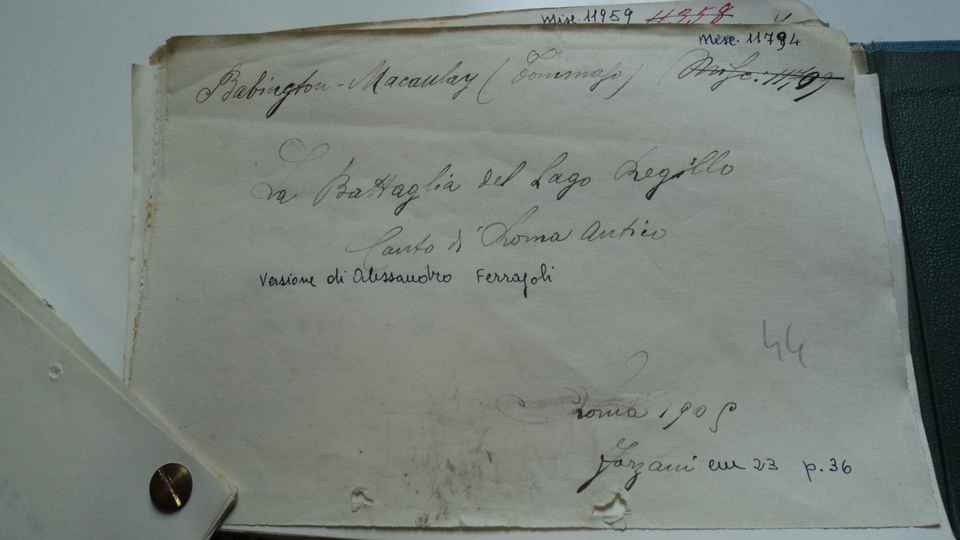 Misc. 11959 11958
Misc. 11794
Babington-Macaulay (Tommaso)
La Battaglia del Lago Regillo
Canto di Roma Antica
Versione di Alessandro Ferrajoli
44
Roma 1905
Forzani cm 23 p. 36